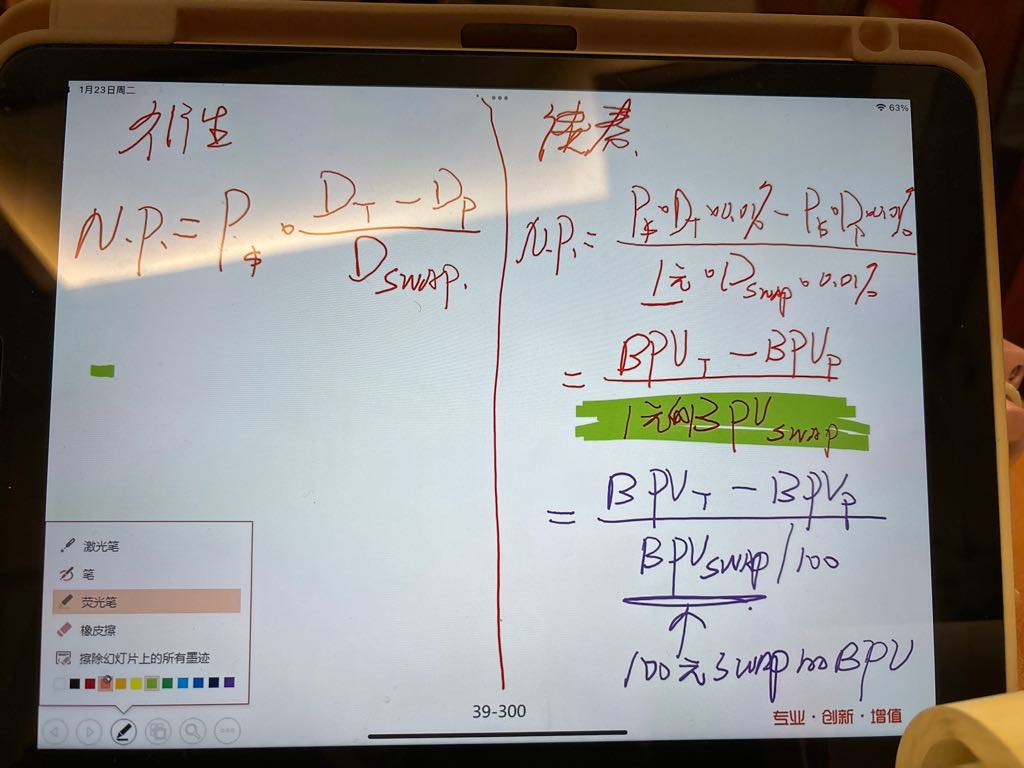 1月23日周二
63%
衍生
N.P. = P$ · (D_T − D_P) / D_SWAP.
债券.
N.P. = (P$·D_T×0.01% − P$·D_P×0.01%) / (1元·D_swap·0.01%)
= (BPV_T − BPV_P) / (1元的BPV_SWAP)
= (BPV_T − BPV_P) / (BPV_SWAP/100)
100元swap的BPV
激光笔
笔
荧光笔
橡皮擦
擦除幻灯片上的所有墨迹
39-300
专业·创新·增值